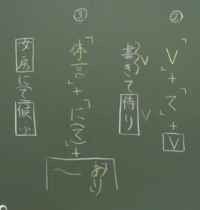 ②
「V」+「て」+V
書きて侍り
V
V
③
「体言」+「にて」+
あり
〜
女房にて候ふ